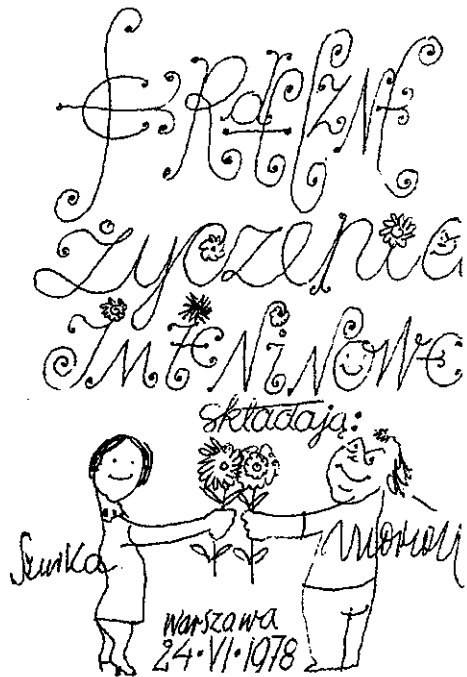 SERdECZNE
życzenia
iMiENiNOWE
składają:
Warszawa
24·VI·1978